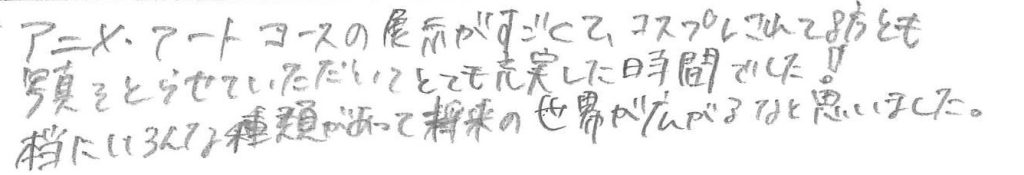 アニメ・アートコースの展示がすごくて、コスプレされてる方とも
写真をとらせていただいてとても充実した時間でした!!
本当にいろんな種類があって将来の世界が広がるなと思いました。